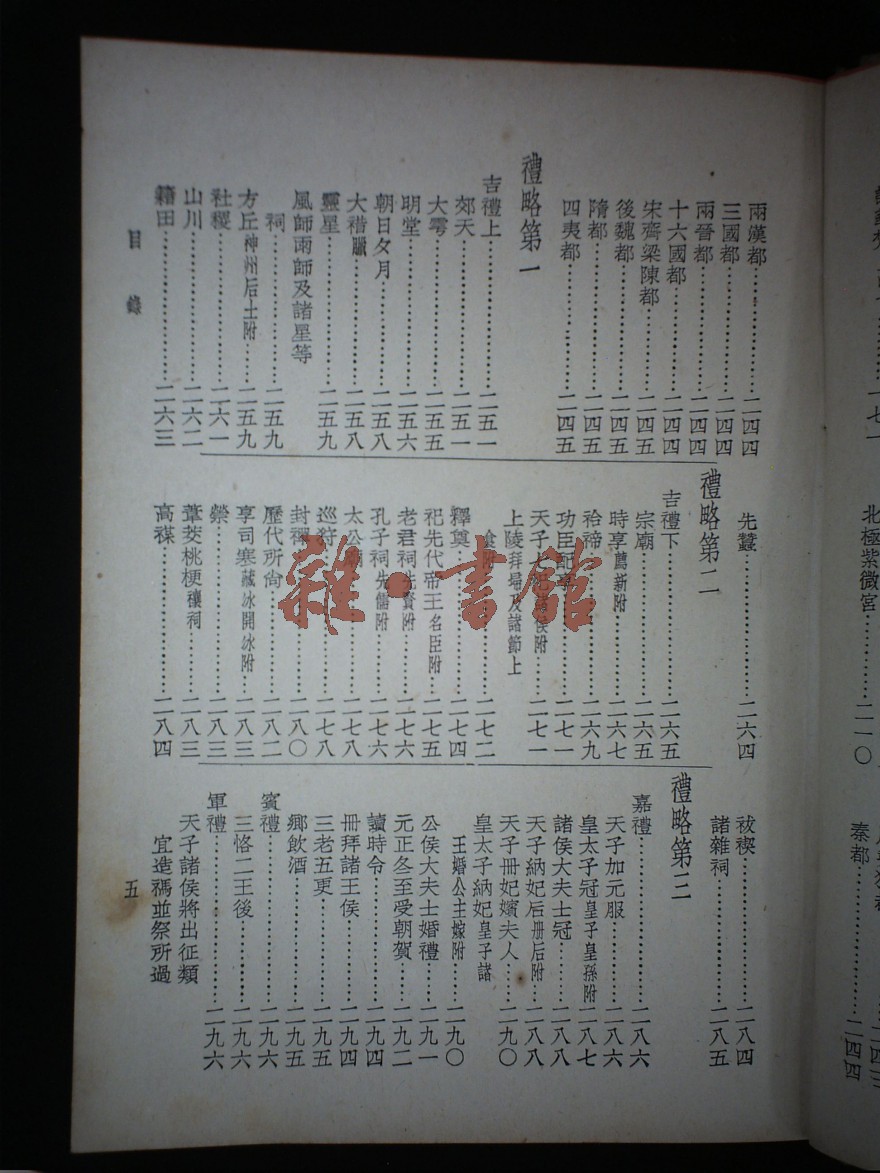 兩漢都……二四四
三國都……二四四
兩晉都……二四四
十六國都……二四四
宋齊梁陳都……二四五
後魏都……二四五
隋都……二四五
四夷都……二四五
禮略第一
吉禮上……二五一
郊天……二五一
大雩……二五五
明堂……二五六
朝日夕月……二五八
大𥛅臘……二五八
靈星……二五九
風師雨師及諸星等
祠……二五九
方丘神州后土附……二五九
社稷……二六一
山川……二六二
籍田……二六三
先蠶……二六四
禮略第二
吉禮下……二六五
宗廟……二六五
時享薦新附……二六七
祫禘……二六九
功臣配享……二七一
天子七祀諸侯附……二七一
上陵拜埽及諸節上
食附……二七二
釋奠……二七四
祀先代帝王名臣附……二七五
老君祠先賢附……二七六
孔子祠先儒附……二七六
太公廟……二七八
巡狩……二七八
封禪……二八〇
歷代所尙……二八二
享司寒藏冰開冰附……二八三
禜……二八三
葦茭桃梗禳祠……二八三
高禖……二八四
祓禊……二八四
諸雜祠……二八五
禮略第三
嘉禮……二八六
天子加元服……二八六
皇太子冠皇子皇孫附……二八七
諸侯大夫士冠……二八八
天子納妃后册后附……二八八
天子册妃嬪夫人……二九〇
皇太子納妃皇子諸
王婚公主嫁附……二九〇
公侯大夫士婚禮……二九一
元正冬至受朝賀……二九二
讀時令……二九四
冊拜諸王侯……二九四
三老五更……二九五
鄉飮酒……二九五
賓禮……二九六
三恪二王後……二九六
軍禮……二九六
天子諸侯將出征類
宜造禡並祭所過
目錄
五
北極紫微宮……二一〇
秦都……二四四
雜·書館